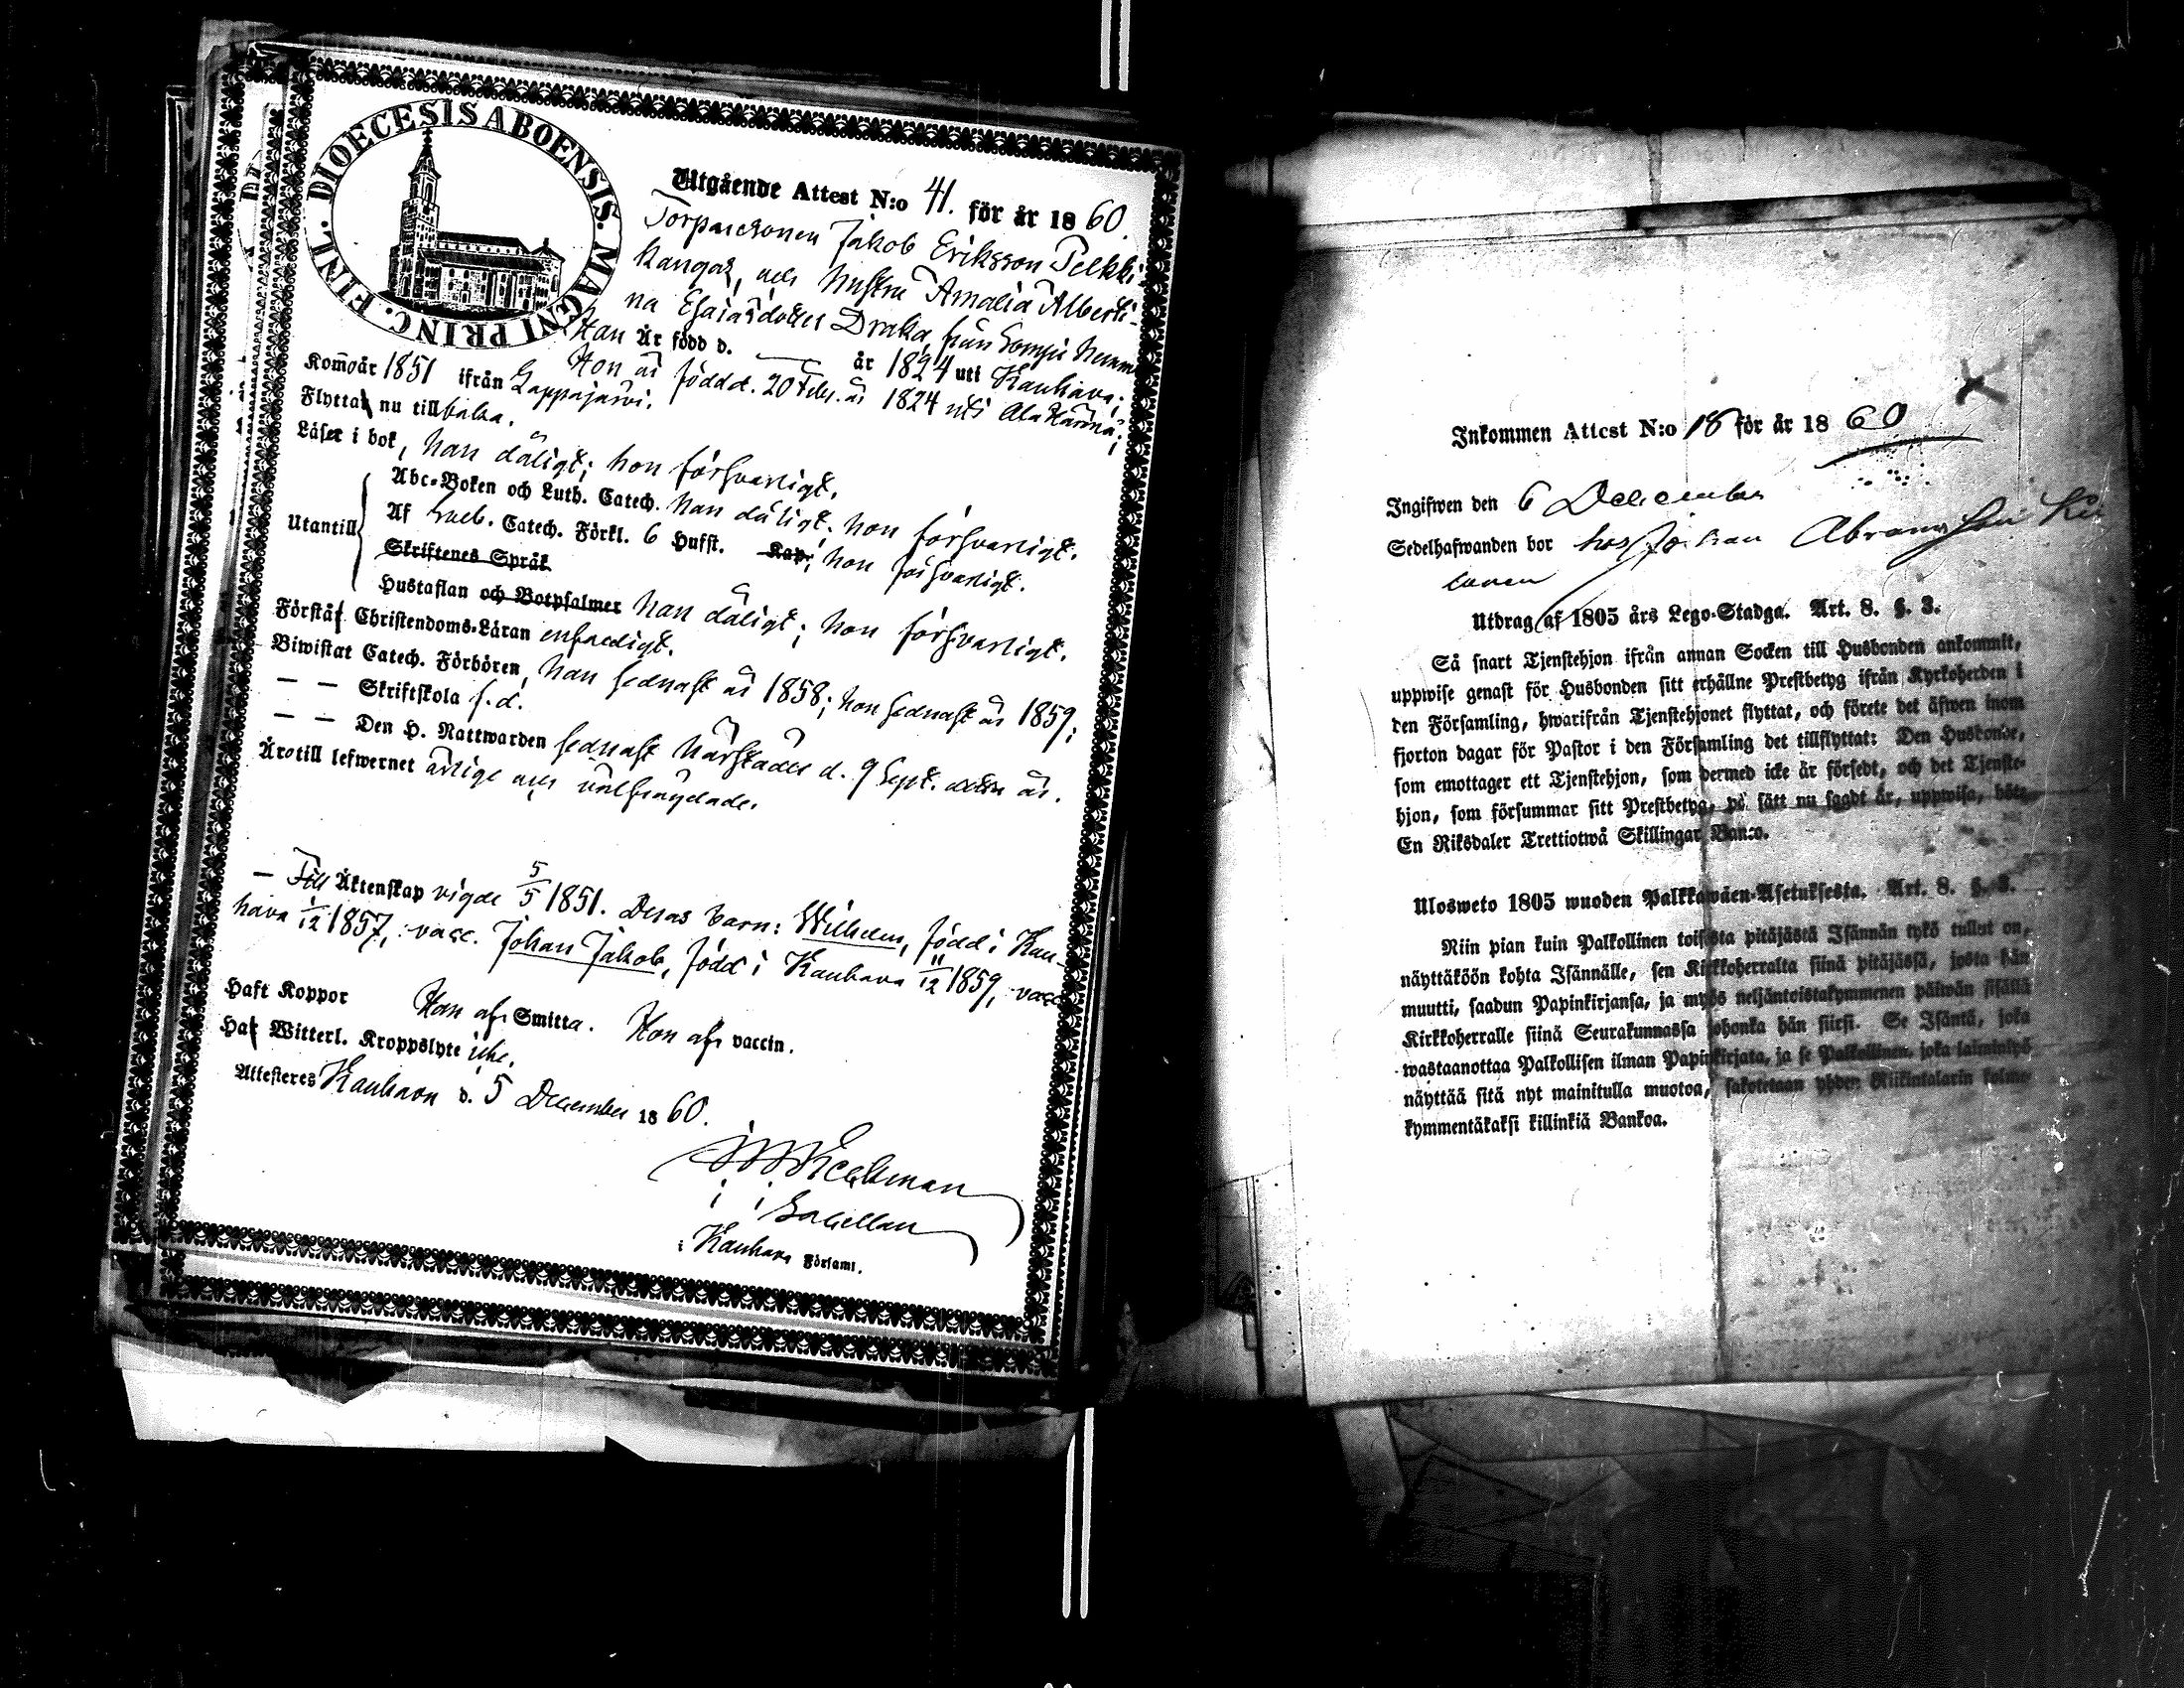 DIOECESIS ABOENSIS. MAGNI PRINC. FINL.
Utgående Attest N:o 41. för år 1860.
Torparesonen Jakob Eriksson Pelkki-
kangas, och hustru Amalia Alberti-
na Esaiasdotter Draka, från
Han Är född d. — år 1824 uti Kauhava;
Hon är född d. 20 Febr. år 1824 uti Ala Härmä;
Kom̄o år 1851 ifrån Lappajärvi.
Flytta nu tillbaka.
Läser i bok, han dåligt; hon försvarligt.
Utantill
Abc-Boken och Luth. Catech. han dåligt; hon försvarligt.
Af Sveb. Catech. Förkl. 6 Hufst. Kap; hon försvarligt.
Skriftenes Språk
Hustaflan och Botpsalmer han dåligt; hon försvarligt.
Förstå Christendoms-Läran enfaldigt.
Biwistat Catech. Förhören, han sednast år 1858; hon sednast år 1859;
— — Skriftskola s. d.
— — Den H. Nattwarden sednast härstädes d. 9 Sept. år.
Äro till lefwernet ärlige och välfrägdade.
— Till Äktenskap vigde 5/5 1851. Deras barn: Wilhelm, född i Kau-
hava 1/12 1857, vacc. Johan Jakob, född i Kauhava 11/12 1859, vacc.
Haft Koppor Han af Smitta. Hon af vaccin.
Haf Witterl. Kroppslyte icke.
Attesteres Kauhava d. 5 December 1860.
Sacellan
i Kauhava Församl.
Inkommen Attest N:o 18 för år 1860
Ingifwen den 6 December
Sedelhafwanden bor hos Johan
Utdrag af 1805 års Lego-Stadga. Art. 8. §. 3.
Så snart Tjenstehjon ifrån annan Socken till Husbonden ankommit,
uppwise genast för Husbonden sitt erhållne Prestbetyg ifrån Kyrkoherden i
den Församling, hwarifrån Tjenstehjonet flyttat, och förete det äfwen inom
fjorton dagar för Pastor i den Församling det tillflyttat: Den Husbonde,
som emottager ett Tjenstehjon, som dermed icke är försedt, och det Tjenste-
hjon, som försummar sitt Prestbetyg, på sätt nu sagdt är, uppwisa, böte
En Riksdaler Trettiotwå Skillingar Banco.
Ulosweto 1805 wuoden Palkkawäen-Asetuksesta. Art. 8. §. 3.
Niin pian kuin Palkollinen toisesta pitäjästä Isännän tykö tullut on,
näyttäköön kohta Isännälle, sen Kirkkoherralta siinä pitäjässä, josta hän
muutti, saadun Papinkirjansa, ja myös neljäntoistakymmenen päiwän sisällä
Kirkkoherralle siinä Seurakunnassa johonka hän siirsi. Se Isäntä, joka
wastaanottaa Palkollisen ilman Papinkirjata, ja se Palkollinen, joka laiminlyö
näyttää sitä nyt mainitulla muotoa, sakotetaan yhden Riikintalarin kolme-
kymmentäkaksi killinkiä Bankoa.